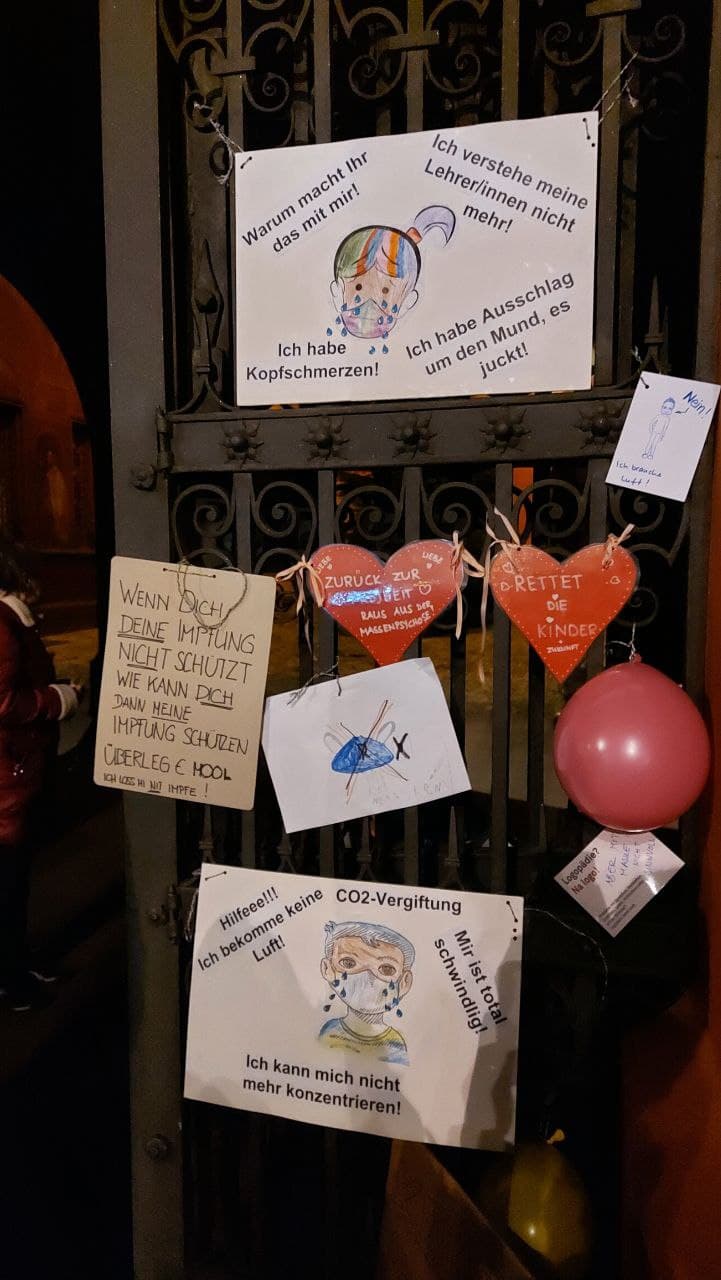 Warum macht Ihr
das mit mir!
Ich verstehe meine
Lehrer/innen nicht
mehr!
Ich habe
Kopfschmerzen!
Ich habe Ausschlag
um den Mund, es
juckt!
Nein!
Ich brauche
Luft!
WENN DICH
DEINE IMPFUNG
NICHT SCHÜTZT
WIE KANN DICH
DANN MEINE
IMPFUNG SCHÜTZEN
ÜBERLEG E MOOL
ICH LOSS MI NIT IMPFE!
LIEBE
LIEBE
ZURÜCK ZUR
RAUS AUS DER
MASSENPSYCHOSE!
RETTET
DIE
KINDER
ZUKUNFT
Logopädie?
Na logo!
ABER MIT
MASKE
NICHT
Hilfeee!!!
Ich bekomme keine
Luft!
CO2-Vergiftung
Mir ist total
schwindlig!
Ich kann mich nicht
mehr konzentrieren!